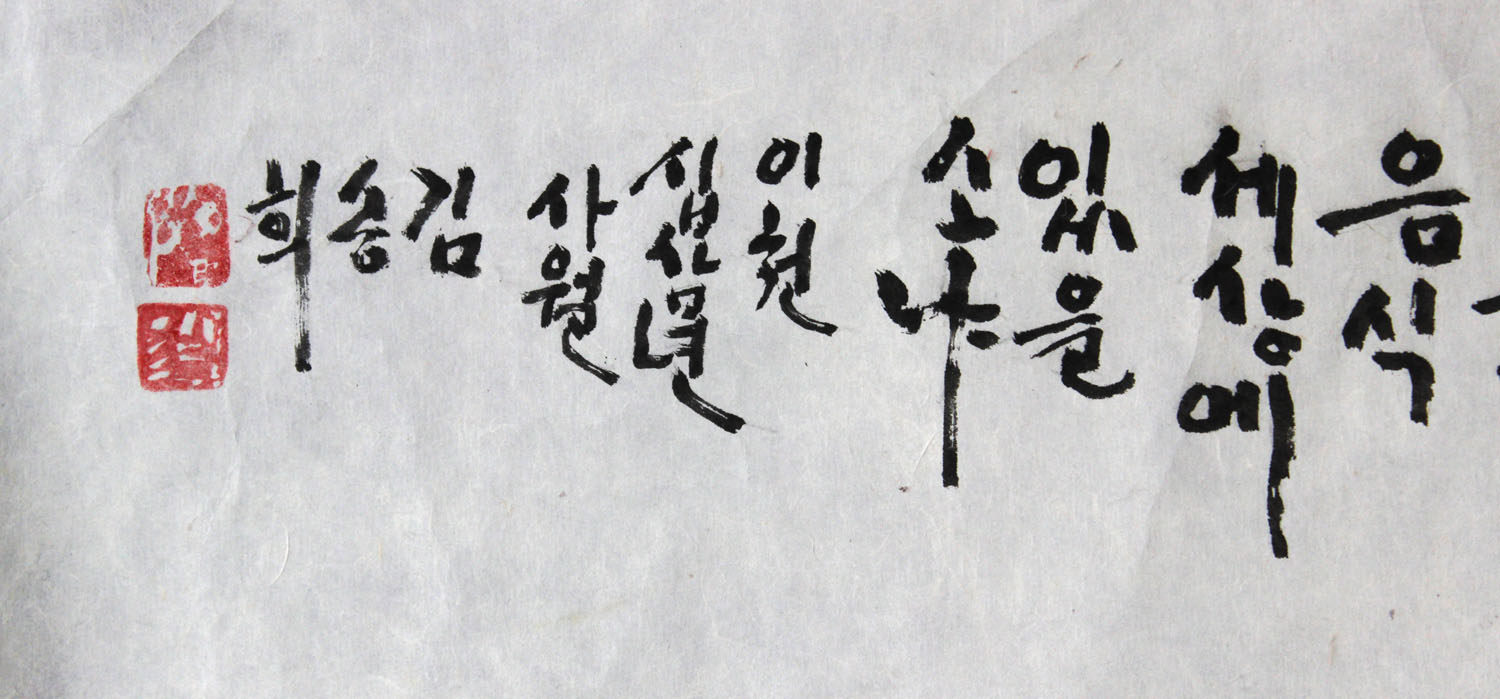 음식
세상에
있을
소냐
이천
십삼년
사월
김
송
희